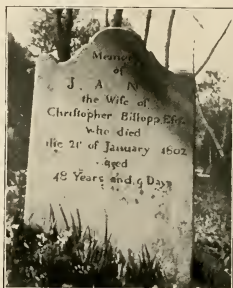 Memory
of
JANE
the Wife of
Christopher Billopp Esqr
who died
the 21st of January 1802
aged
48 Years and 9 Days